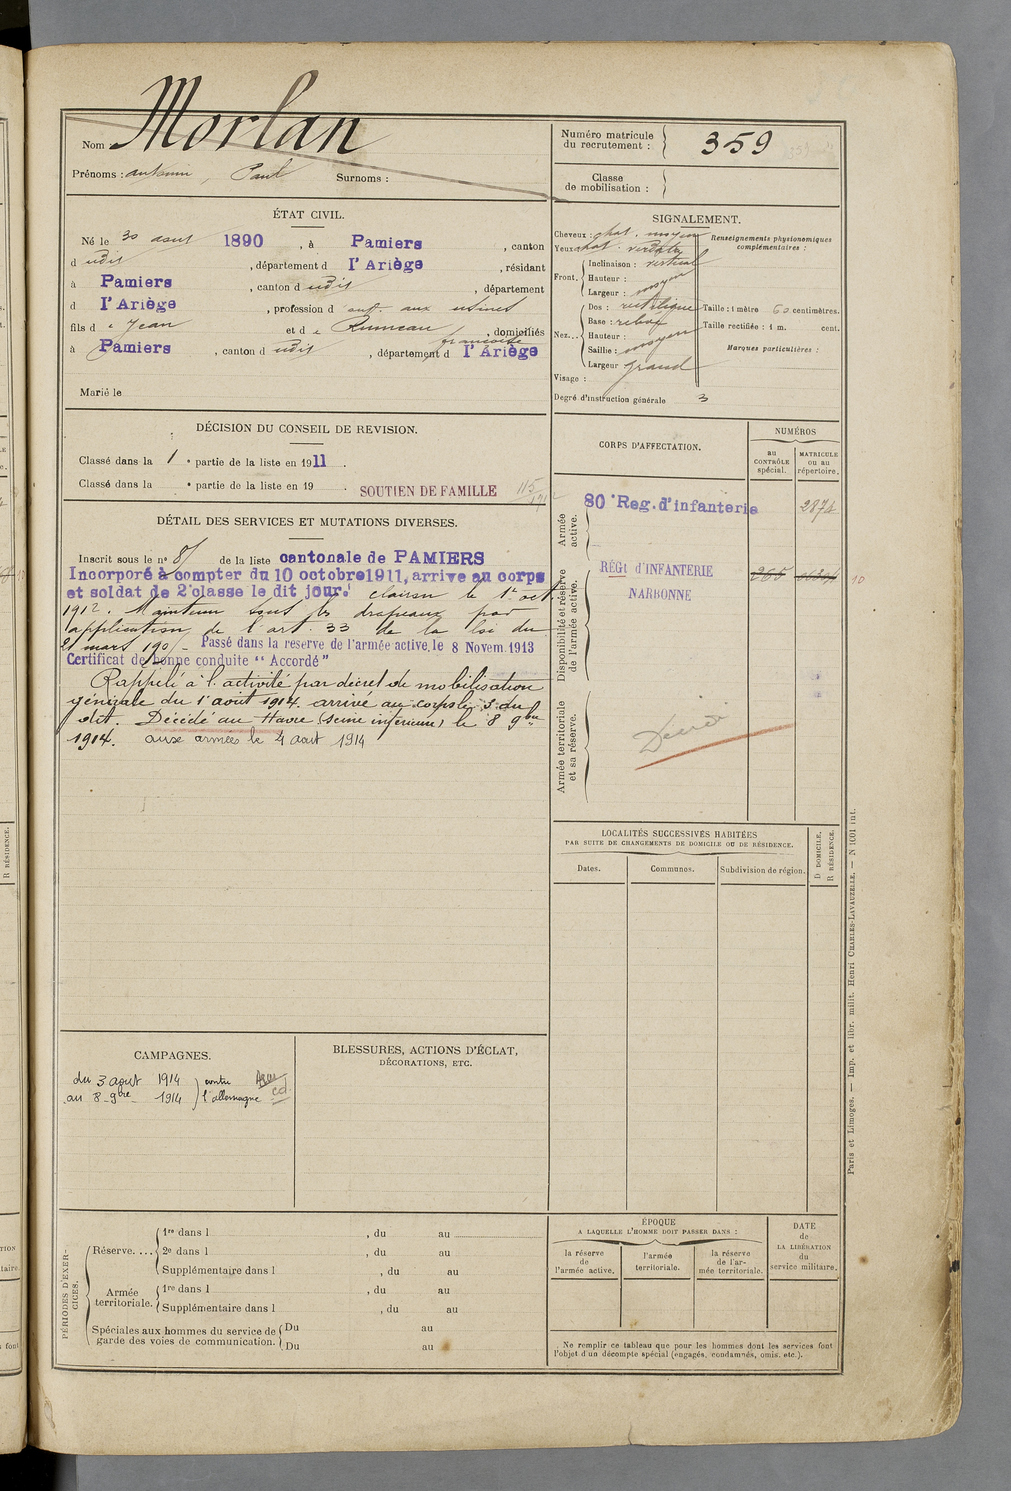 Morlan
Nom
Prénoms : Antonin, Paul Surnoms :
Numéro matricule
du recrutement : 359
Classe
de mobilisation :
ÉTAT CIVIL.
Né le 30 août 1890, à Pamiers, canton
d udit, département d l'Ariège, résidant
à Pamiers, canton d udit, département
d l'Ariège, profession d aux usines
fils d e Jean et d e Rumeau françoise, domiciliés
à Pamiers, canton d udit, département d l'Ariège
Marié le
SIGNALEMENT.
Cheveux : chat. moyen
Yeux chat. verdatre
Front. Inclinaison : vertical
Hauteur :
Largeur : moyen
Nez... Dos : rectiligne
Base : relevé
Hauteur :
Saillie : moyen
Largeur grand
Visage :
Degré d'instruction générale 3
Renseignements physionomiques
complémentaires :
Taille : 1 mètre 60 centimètres.
Taille rectifiée : 1 m. cent.
Marques particulières :
DÉCISION DU CONSEIL DE REVISION.
Classé dans la 1e partie de la liste en 1911.
Classé dans la e partie de la liste en 19 .
SOUTIEN DE FAMILLE
DÉTAIL DES SERVICES ET MUTATIONS DIVERSES.
Inscrit sous le n° 81 de la liste cantonale de PAMIERS
Incorporé à compter du 10 octobre 1911, arrive au corps
et soldat de 2e classe le dit jour. clairon le 1er oct.
1912. Maintenu sous les drapeaux par
application de l'art. 33 de la loi du
21 mars 190 - Passé dans la reserve de l'armée active, le 8 Novem. 1913
Certificat de bonne conduite "Accordé"
Rappelé à l'activité par décret de mobilisation
générale du 1er août 1914. arrivé au corps le 3 du
dit. Décédé au Havre (Seine inférieure) le 8 9bre
1914. aux armées le 4 août 1914
CORPS D'AFFECTATION.
NUMÉROS
au
CONTRÔLE
spécial.
MATRICULE
ou au
répertoire.
Armée
active.
80e Reg. d'infanterie 2874
Disponibilité et réserve
de l'armée active.
RÉGt d'INFANTERIE
NARBONNE
265
10
Armée territoriale
et sa réserve.
Décédé
LOCALITÉS SUCCESSIVES HABITÉES
PAR SUITE DE CHANGEMENTS DE DOMICILE OU DE RÉSIDENCE.
Dates. Communes. Subdivision de région.
D DOMICILE.
R RÉSIDENCE.
CAMPAGNES.
du 3 août 1914
au 8 9bre 1914
contre
l'allemagne
BLESSURES, ACTIONS D'ÉCLAT,
DÉCORATIONS, ETC.
PÉRIODES D'EXERCICES.
Réserve.... 1re dans l , du au
2e dans l , du au
Supplémentaire dans l , du au
Armée
territoriale. 1re dans l , du au
Supplémentaire dans l , du au
Spéciales aux hommes du service de
garde des voies de communication. Du au
Du au
ÉPOQUE
A LAQUELLE L'HOMME DOIT PASSER DANS :
la réserve
de
l'armée active.
l'armée
territoriale.
la réserve
de l'ar-
mée territoriale.
DATE
de
LA LIBÉRATION
du
service militaire.
Ne remplir ce tableau que pour les hommes dont les services font
l'objet d'un décompte spécial (engagés, condamnés, omis, etc.).
Paris et Limoges. — Imp. et libr. milit. Henri CHARLES-LAVAUZELLE. — N 1001 int.
R RÉSIDENCE.